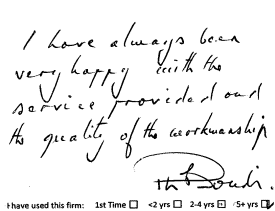 I have always been
very happy with the
service provided and
the quality of the workmanship
I have used this firm: 1st Time <2 yrs 2-4 yrs 5+ yrs